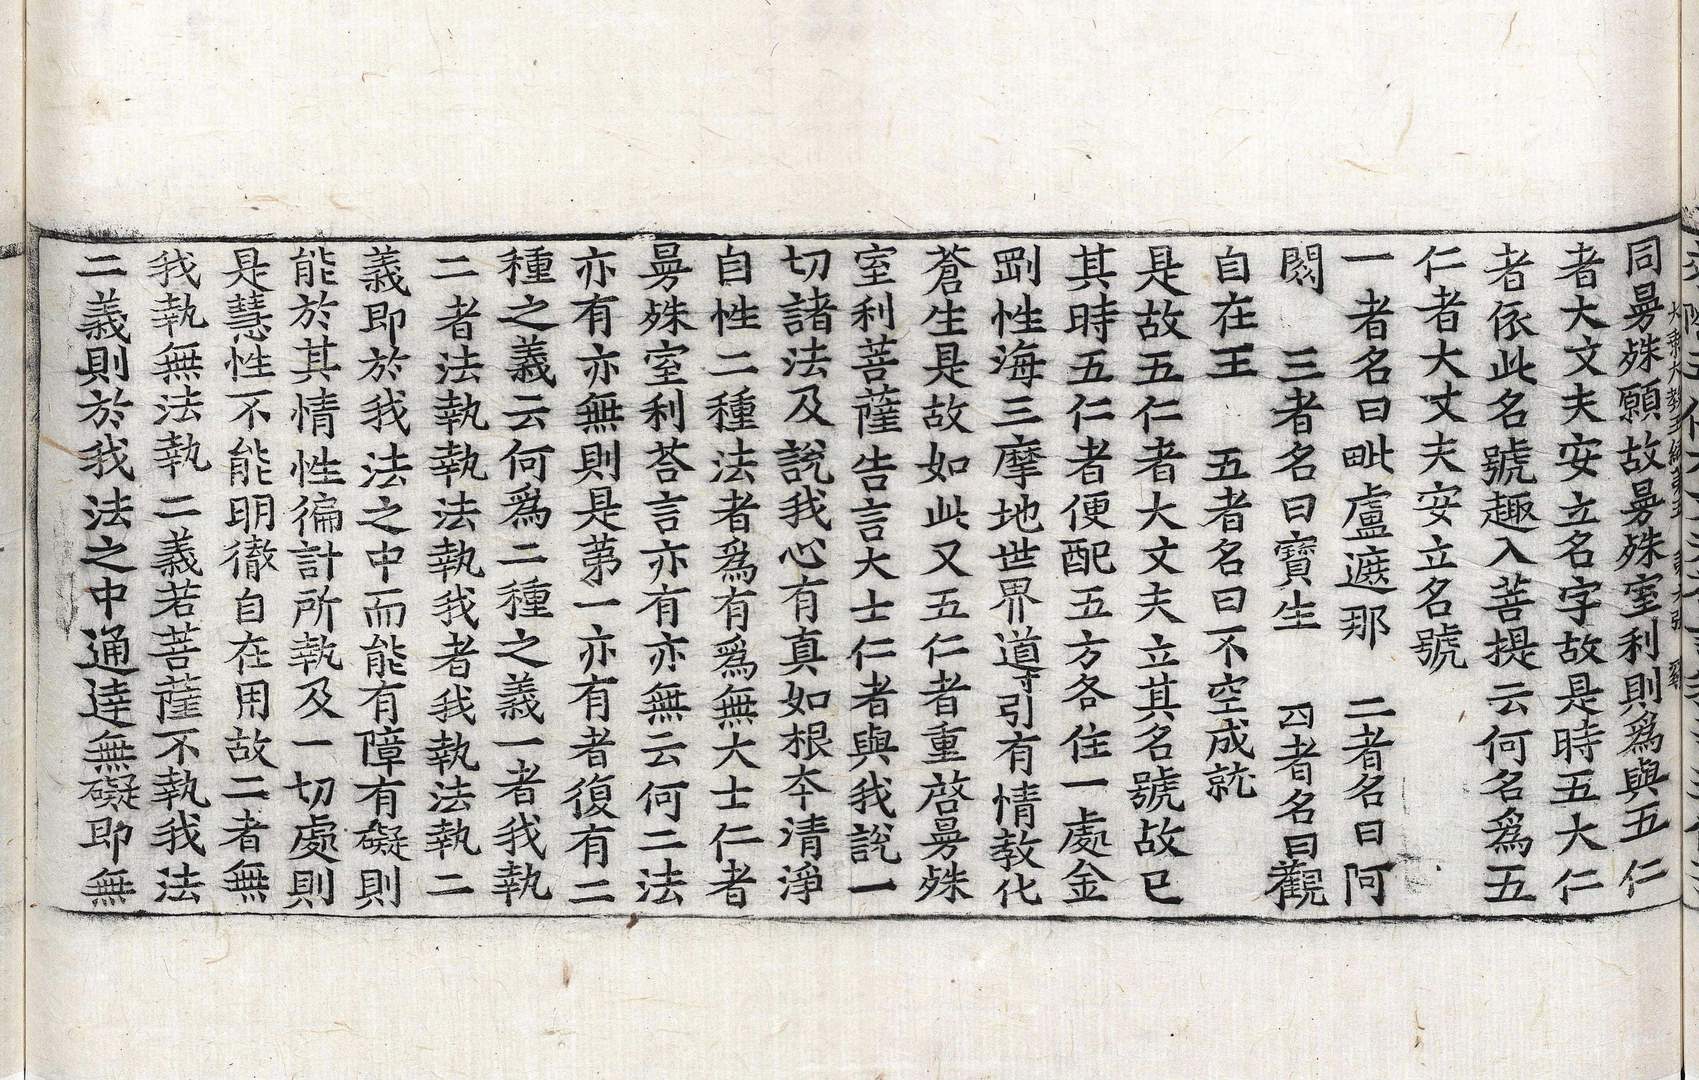 同曼殊願故曼殊室利則爲與五仁
者大丈夫安立名字故是時五大仁
者依此名號趣入菩提云何名爲五
仁者大丈夫安立名號
一者名曰毗盧遮那　二者名曰阿
閦　三者名曰寶生　四者名曰觀
自在王　五者名曰不空成就
是故五仁者大丈夫立其名號故已
其時五仁者便配五方各住一處金
剛性海三摩地世界導引有情教化
蒼生是故如此又五仁者重啓曼殊
室利菩薩告言大士仁者與我說一
切諸法及說我心有真如根本清淨
自性二種法者爲有爲無大士仁者
曼殊室利荅言亦有亦無云何二法
亦有亦無則是苐一亦有者復有二
種之義云何爲二種之義一者我執
二者法執執法執我者我執法執二
義即於我法之中而能有障有礙則
能於其情性徧計所執及一切處則
是慧性不能明徹自在用故二者無
我執無法執二義若菩薩不執我法
二義則於我法之中通達無礙即無